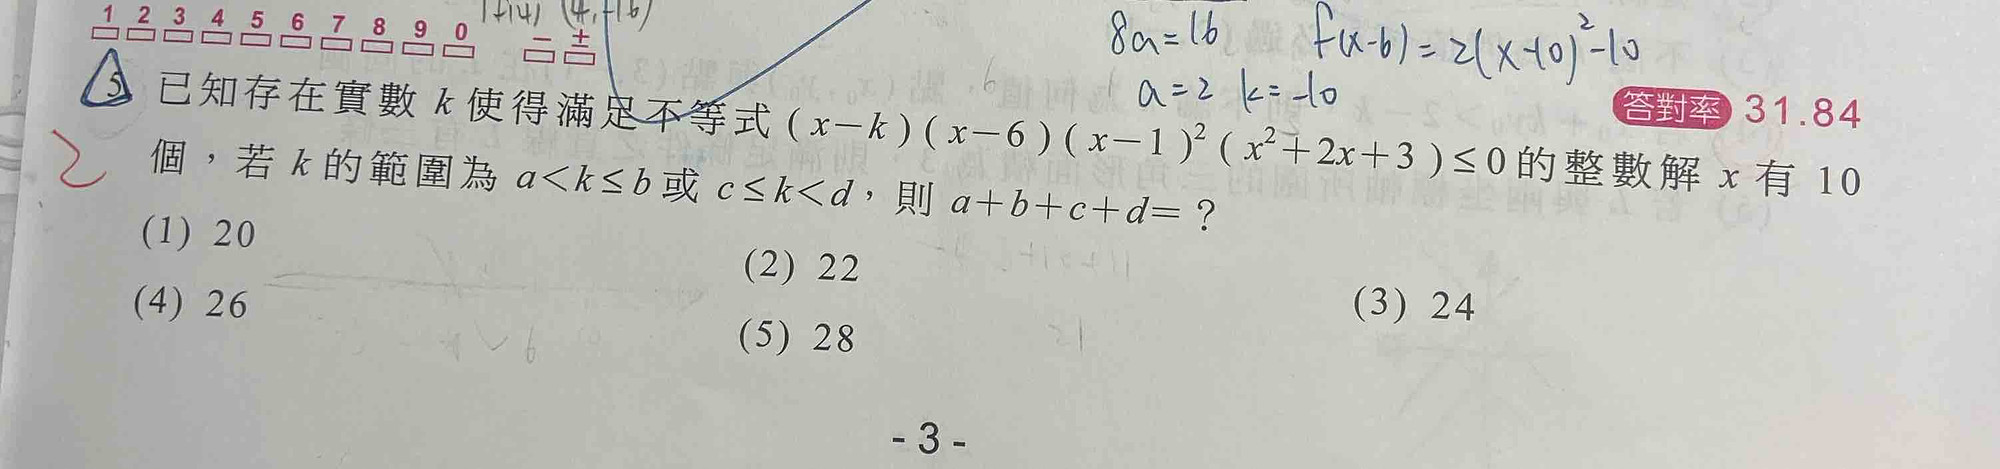 1 2 3 4 5 6 7 8 9 0 − ±
8a=16 f(x-6)=2(x-10)²-10
a=2 k=-10
5 已知存在實數 k 使得滿足不等式 (x−k)(x−6)(x−1)²(x²+2x+3)≤0 的整數解 x 有 10
答對率 31.84
個,若 k 的範圍為 a<k≤b 或 c≤k<d,則 a+b+c+d=?
(1) 20
(2) 22
(3) 24
(4) 26
(5) 28
- 3 -